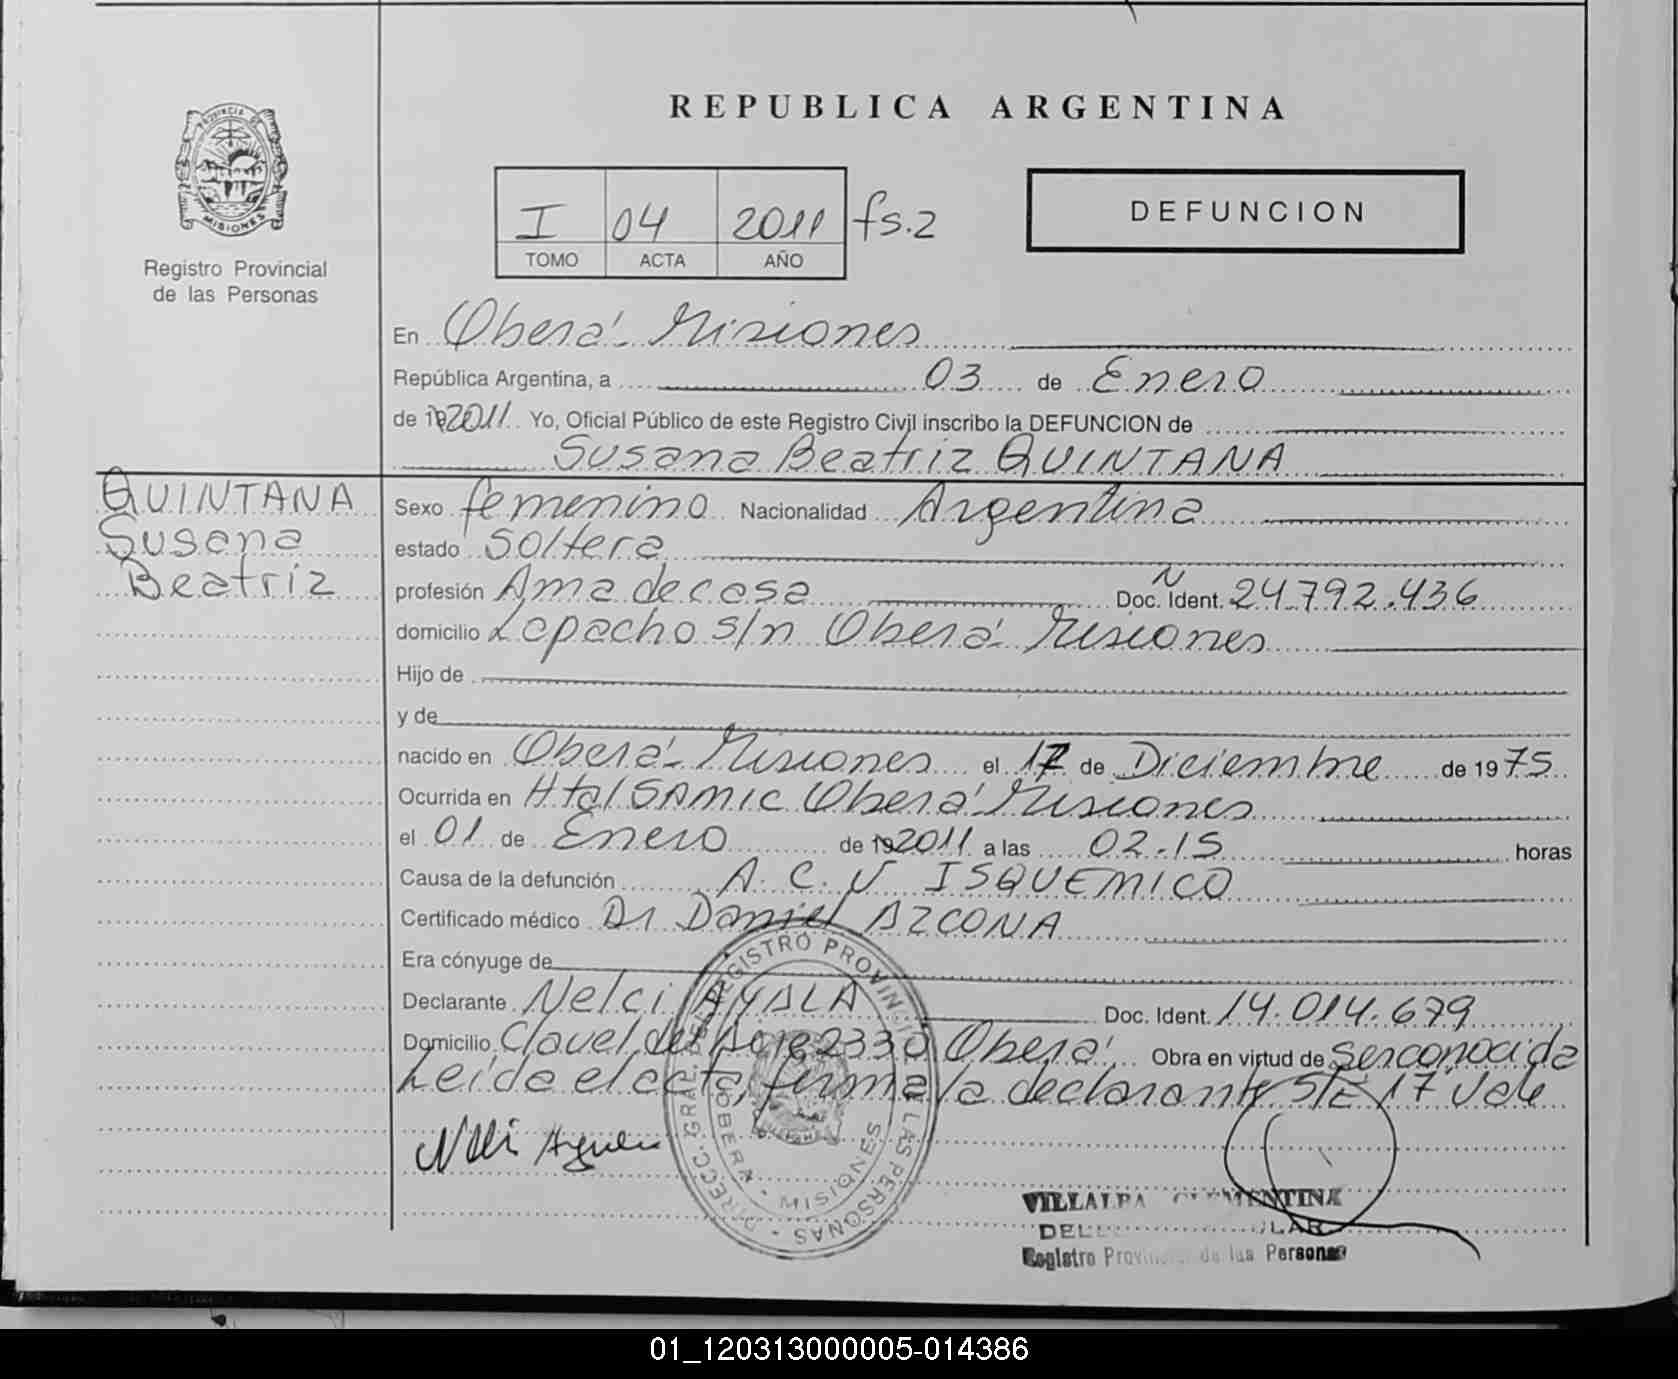 REPUBLICA ARGENTINA
PROVINCIA DE
MISIONES
Registro Provincial
de las Personas
I 04 2011 fs.2
TOMO ACTA AÑO
DEFUNCION
En Oberá - Misiones
República Argentina, a 03 de Enero
de 19 2011. Yo, Oficial Público de este Registro Civil inscribo la DEFUNCION de
Susana Beatriz QUINTANA
QUINTANA
Susana
Beatriz
Sexo femenino Nacionalidad Argentina
estado soltera
profesión Ama de casa Doc. Ident. N 24.792.436
domicilio Lapacho s/n Oberá - Misiones
Hijo de
y de
nacido en Oberá - Misiones el 17 de Diciembre de 1975
Ocurrida en Htal SAMIC Oberá Misiones
el 01 de Enero de 19 2011 a las 02.15 horas
Causa de la defunción A.C.V ISQUEMICO
Certificado médico Dr Daniel AZCONA
Era cónyuge de
Declarante Nelci AYALA Doc. Ident. 14.014.679
Domicilio Clavel del Aire 2330 Oberá Obra en virtud de ser conocida
Leída el acta, firma la declarante S/E 17 Vale
DIRECC. GRAL. DEL REGISTRO PROVINCIAL DE LAS PERSONAS
OBERA - MISIONES
VILLALBA CLEMENTINA
Registro Provincial de las Personas
01_120313000005-014386